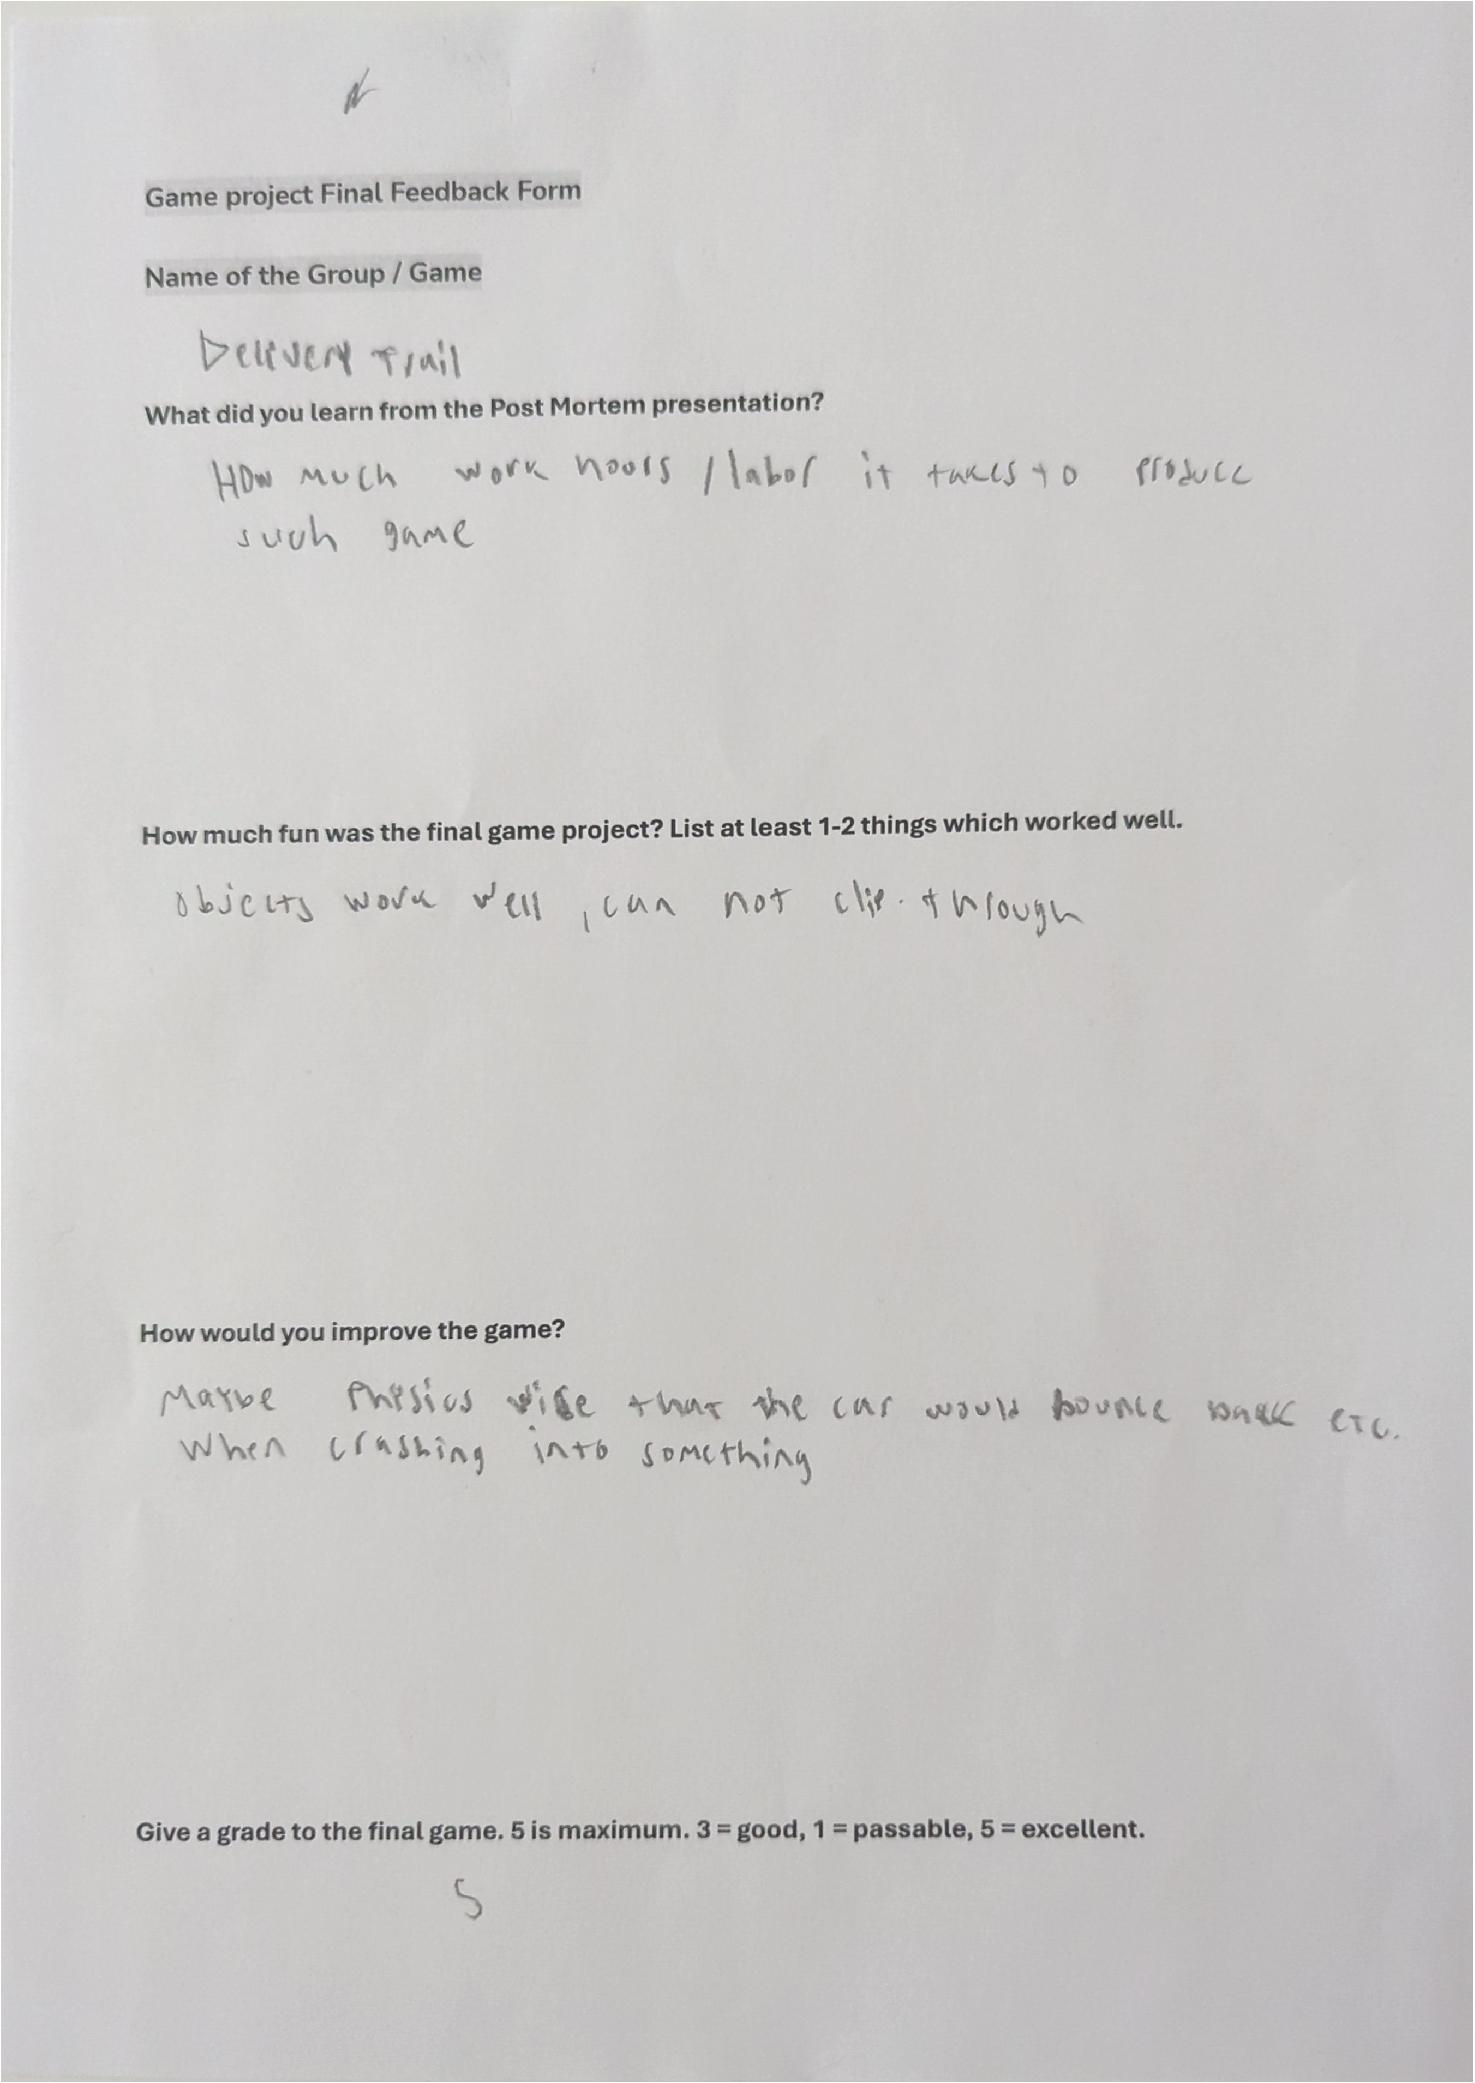 Game project Final Feedback Form
Name of the Group / Game
Delivery Trail
What did you learn from the Post Mortem presentation?
How much work hours / labor it takes to produce
such game
How much fun was the final game project? List at least 1-2 things which worked well.
Objects work well, can not clip through
How would you improve the game?
Maybe Physics wise that the car would bounce back etc.
When crashing into something
Give a grade to the final game. 5 is maximum. 3 = good, 1 = passable, 5 = excellent.
5